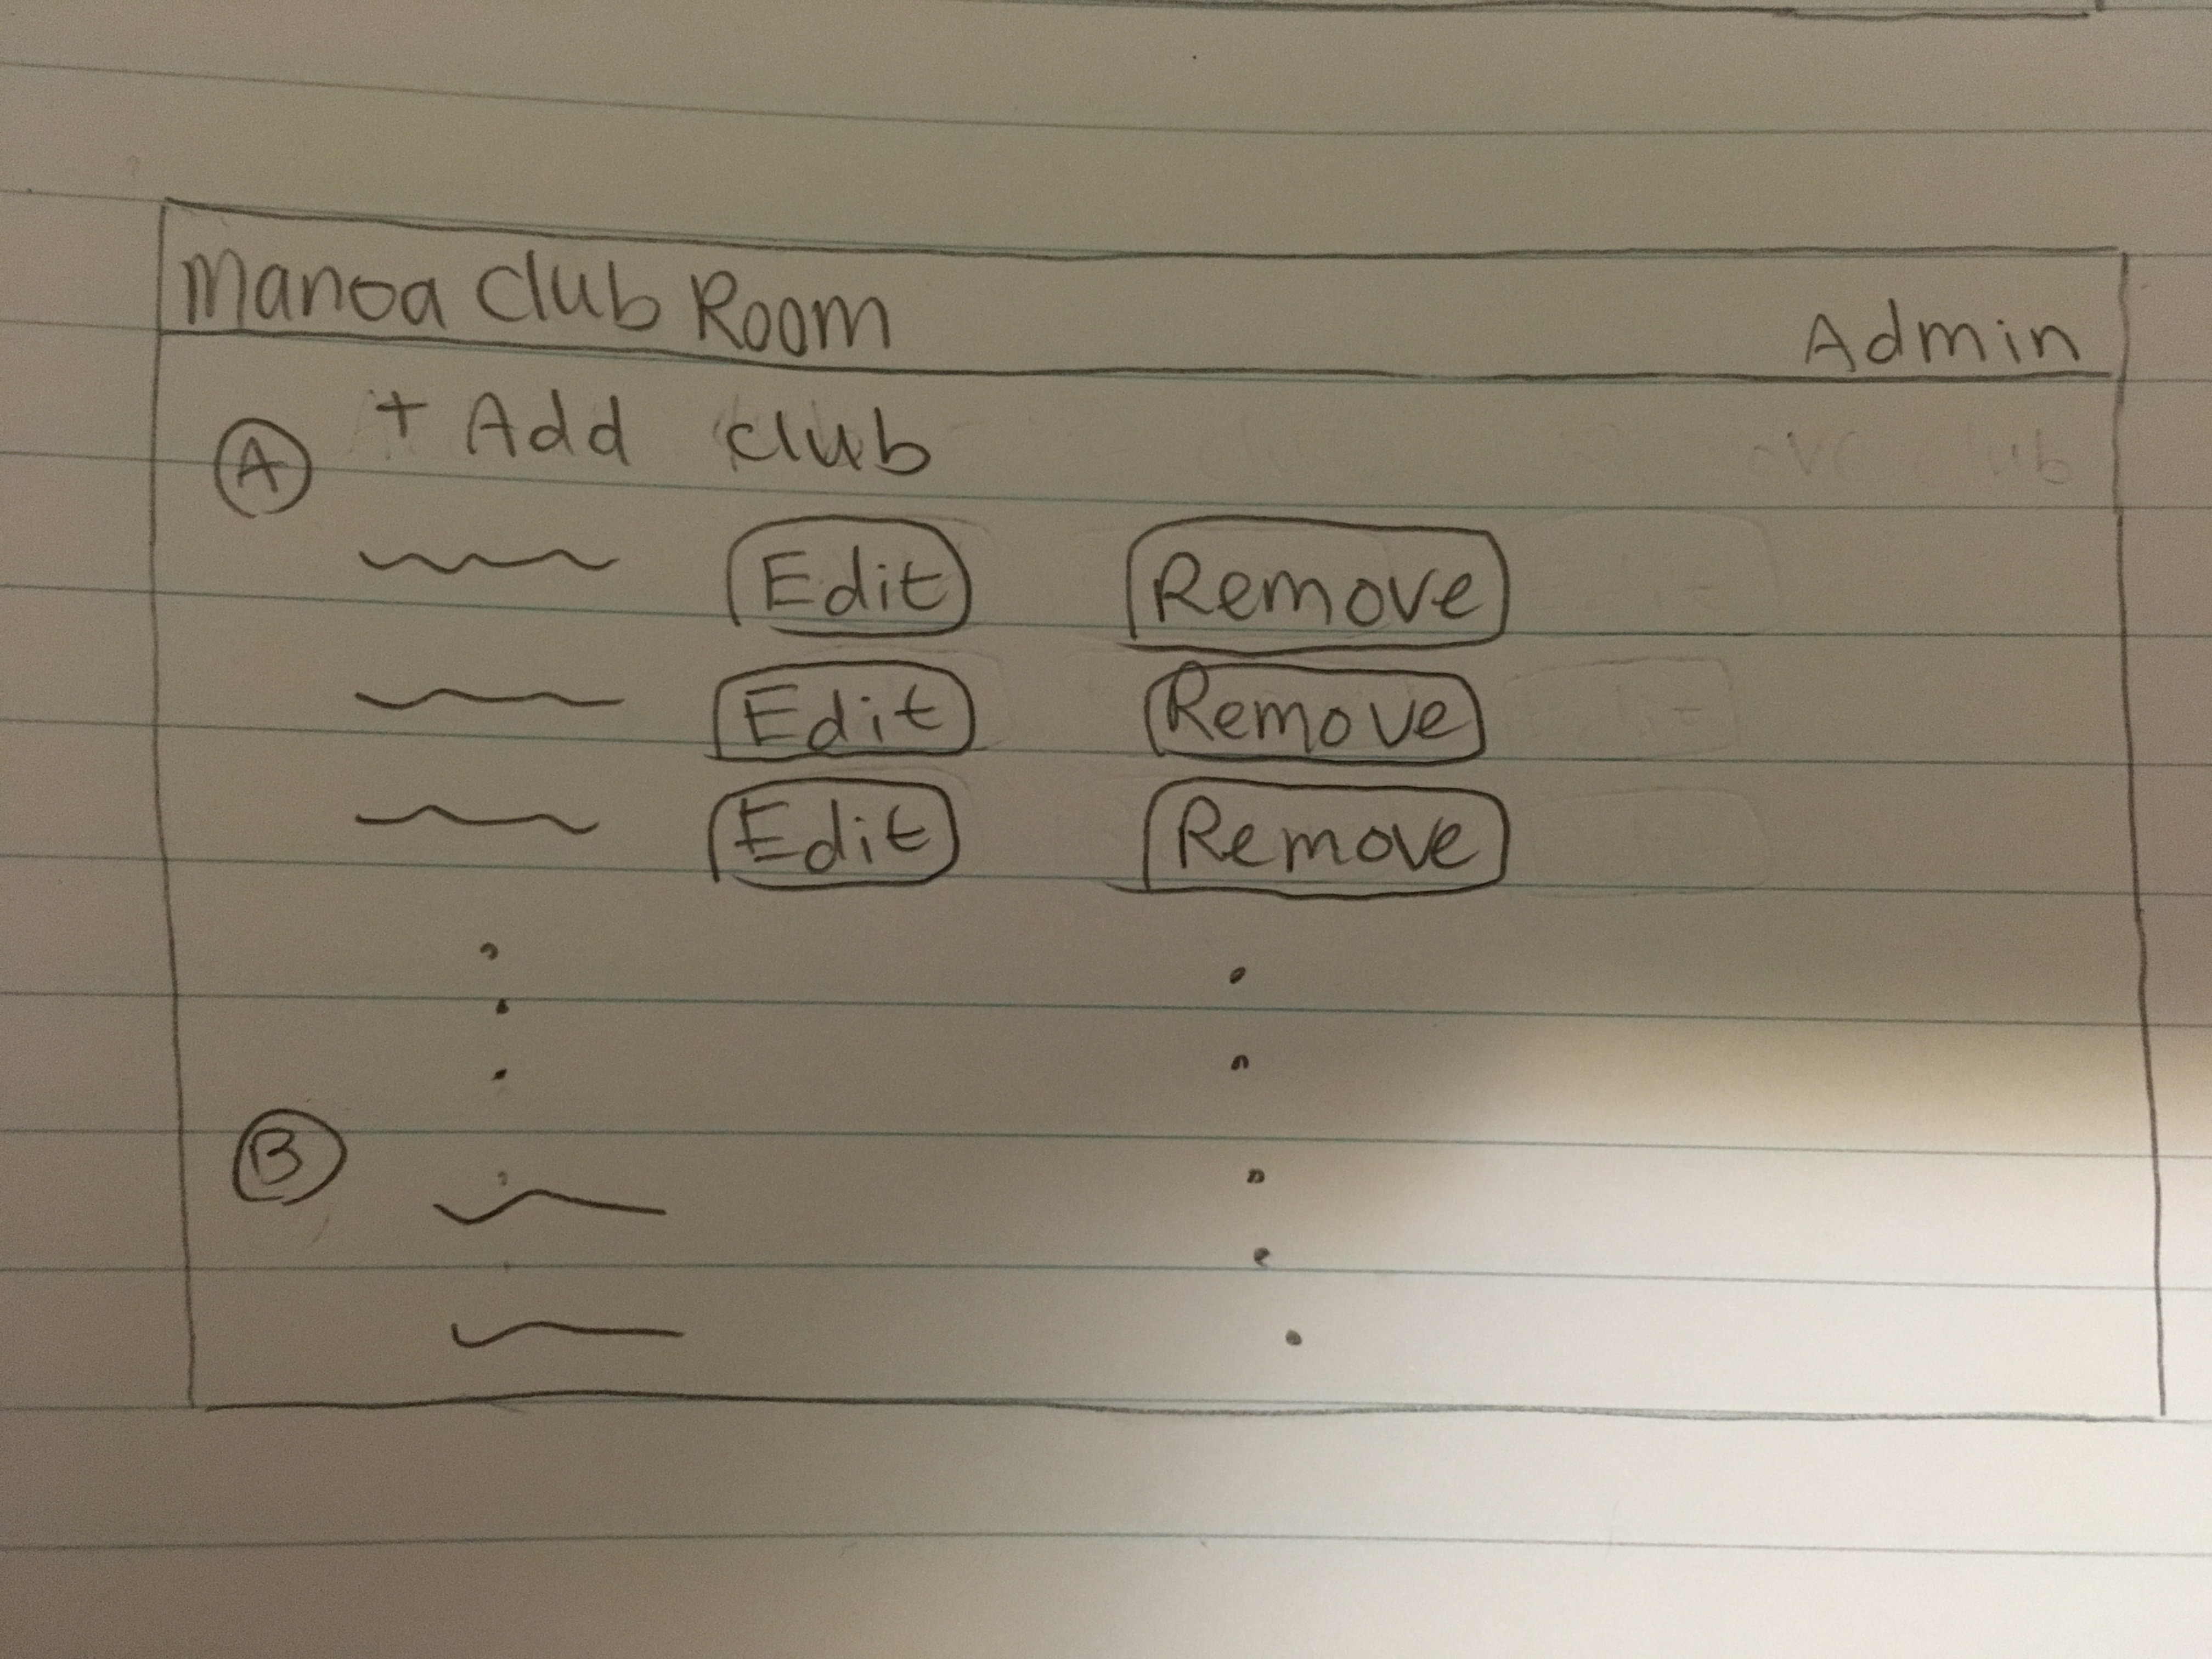 Manoa Club Room Admin
A + Add club
Edit Remove
Edit Remove
Edit Remove
B